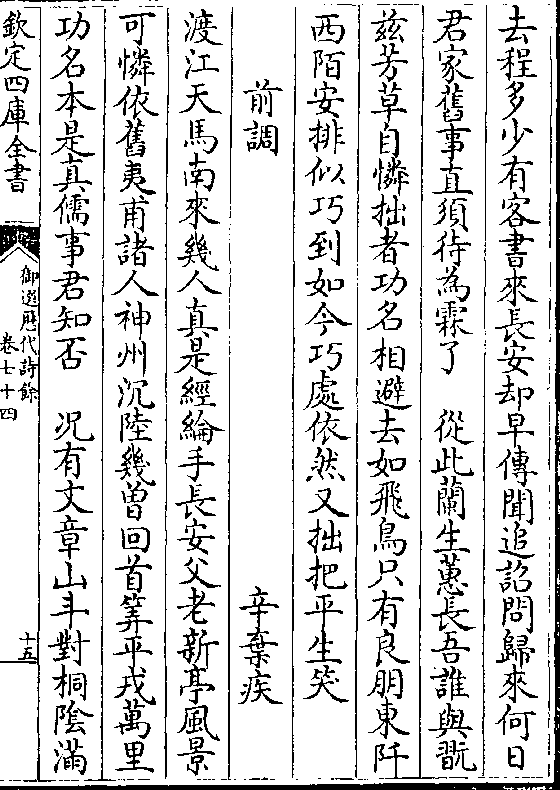 去程多少有客書來長安却早傳聞追詔問歸來何日
君家舊事直須待為霖了　從此蘭生蕙長吾誰與翫
兹芳草自憐拙者功名相避去如飛鳥只有良朋東阡
西陌安排似巧到如今巧處依然又拙把平生笑
前調　辛棄疾
渡江天馬南來幾人真是經綸手長安父老新亭風景
可憐依舊夷甫諸人神州沉陸幾曽回首筭平戎萬里
功名本是真儒事君知否　况有文章山斗對桐陰滿
欽定四庫全書
御選歴代詩餘
卷七十四
十五